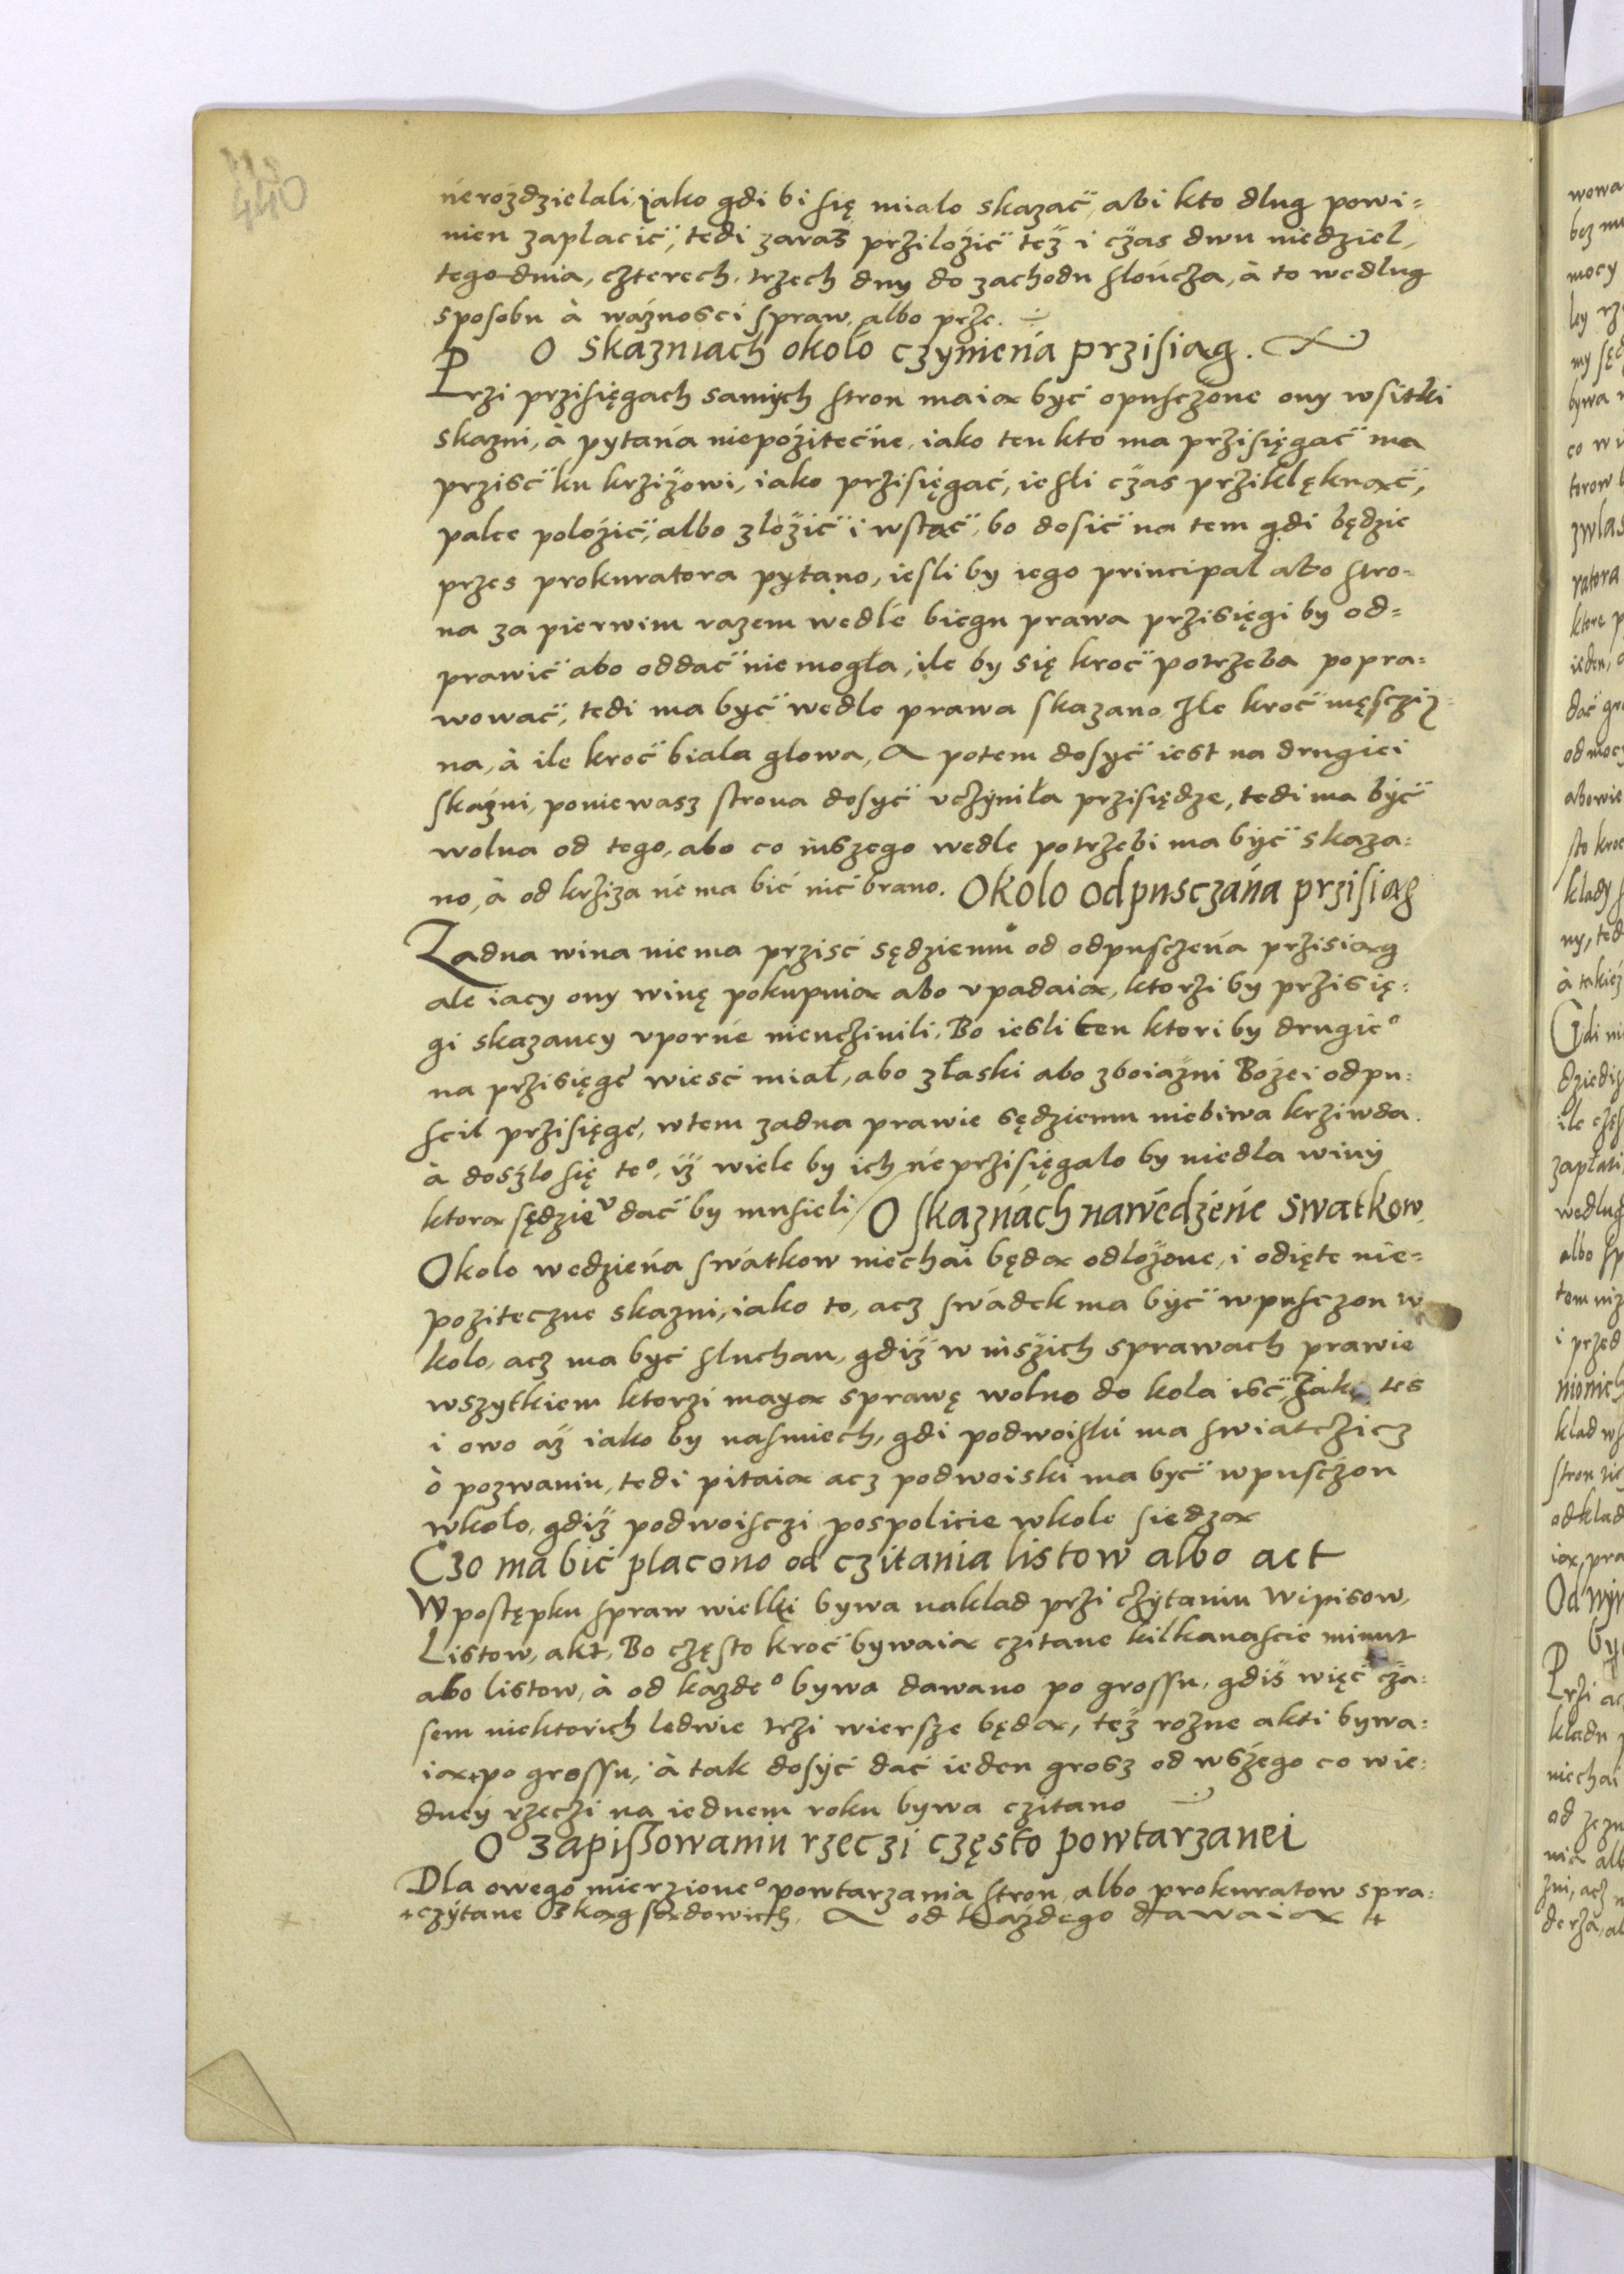 nérozdzielali, iako gdi bi się mialo skazać, abi kto dlug powi=
nien zaplacić, tedi zaras przilozić też i czas dwu niedziel,
tego dnia, czterech, trzech dny do zachodu slończa, à to wedlug
sposobu à ważnosci spraw, albo prze.
O skazniach okolo czynieńa przisiąg.
Przi przisięgach samych stron maią być opusczone ony wsitki
skazni, à pytańa niepożitećne, iako ten kto ma przisięgać ma
przisć ku krziżowi, iako przisięgać, iesli czas przikleknąć,
palce polozić, albo zlożić i wstać, bo dosić na tem gdi będzie
przes prokuratora pytano, iesli by iego principal abo stro=
na za pierwim razem wedle biegu prawa przisięgi by od=
prawić abo oddać nie mogła, ile by się kroć potrzeba popra=
wować, tedi ma być wedle prawa skazano Ile kroć męsczi=
na, à ile kroć biala glowa, A potem dosyć iest na drugiei
skaźni, poniewasz strona dosyć vczyniła przisiędze, tedi ma być
wolna od tego, abo co inszego wedle potrzebi ma być skaza=
no, à od krziza né ma bić nić brano. Okolo odpusczańa przisiąg
Zadna wina nie ma przisć sędziemu od odpusczeńa przisiąg
ale iacy ony winę pokupnią abo vpadaią, ktorzi by przisię=
gi skazaney vporné nieuczinili. Bo iesli ten ktori by drugieº
na przisięgę wiesć miał, abo złaski abo zboiaźni Bożei odpu=
scil przisięgę, wtem zadna prawie sędziemu niebiwa krziwda.
à doszlo się teº, iż wiele by ich né przisięgalo by niedla winy
ktorą sędzieᵛ dać by musieli / O skaznách nawédzéńe swatkow
Okolo wedzieńa swátkow niechai będą odlożone, i odięte nie=
poziteczne skazni, iako to, acz swádek ma być wpusczon w
kolo, acz ma być sluchan, gdiż w niszich sprawach prawie
wszytkiem ktorzi mayą sprawę wolno do kola isć, Iako tes
i owo aż iako by nasmiech, gdi podwoiski ma swiatczicz
ò pozwaniu, tedi pitaią acz podwoiski ma być wpusczon
wkoło, gdiż podwoisczi pospolicie wkole siedzą
Czo ma bić placono od czitania listow albo act
W postępku spraw wielki bywa naklad przi czytaniu wipisow,
Listow, akt, Bo często kroć bywaią czitane kilkanascie minut
abo listow, à od kazdeº bywa dawano po grossu, gdis więć cza=
sem niektorich ledwie trzi wiersze będą, też rozne akti bywa=
ią + po grossu, à tak dosyć dać ieden grosz od wszego co wie=
dney rzeczi na iednem roku bywa czitano
O zapissowaniu rzeczi często powtarzanei
Dla owego mierzioneº powtarzania stron, albo prokuratow spra=
+ czytane z ksiąg sądowich, A od każdego dawaią +